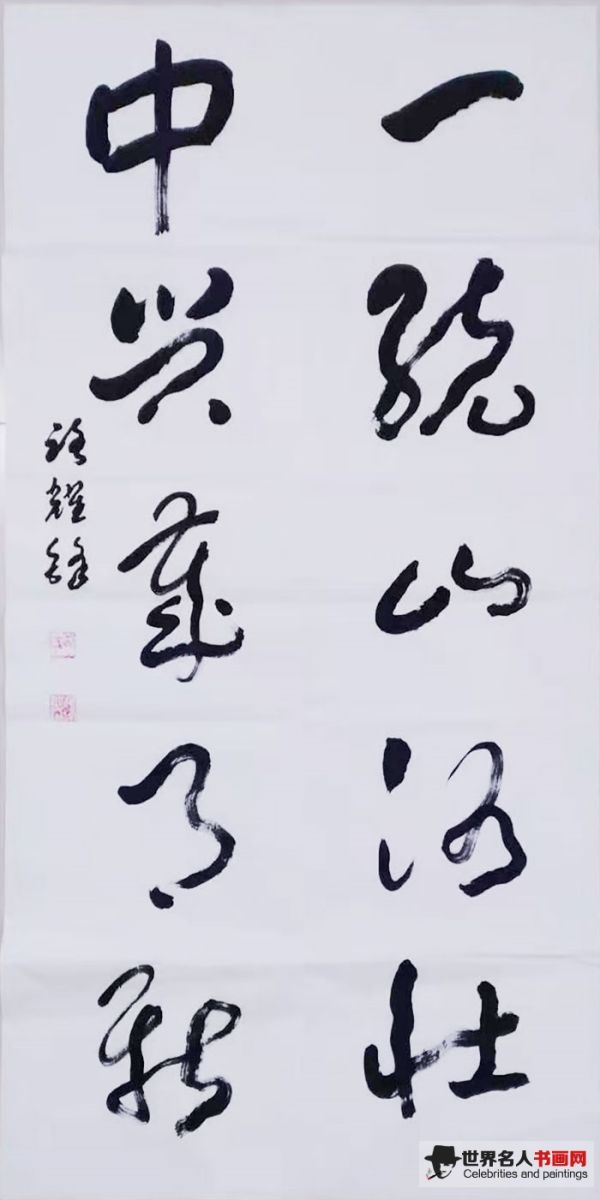 一统山河壮
中兴岁月新
路耀锋
世界名人书画网
Celebrities and paintings